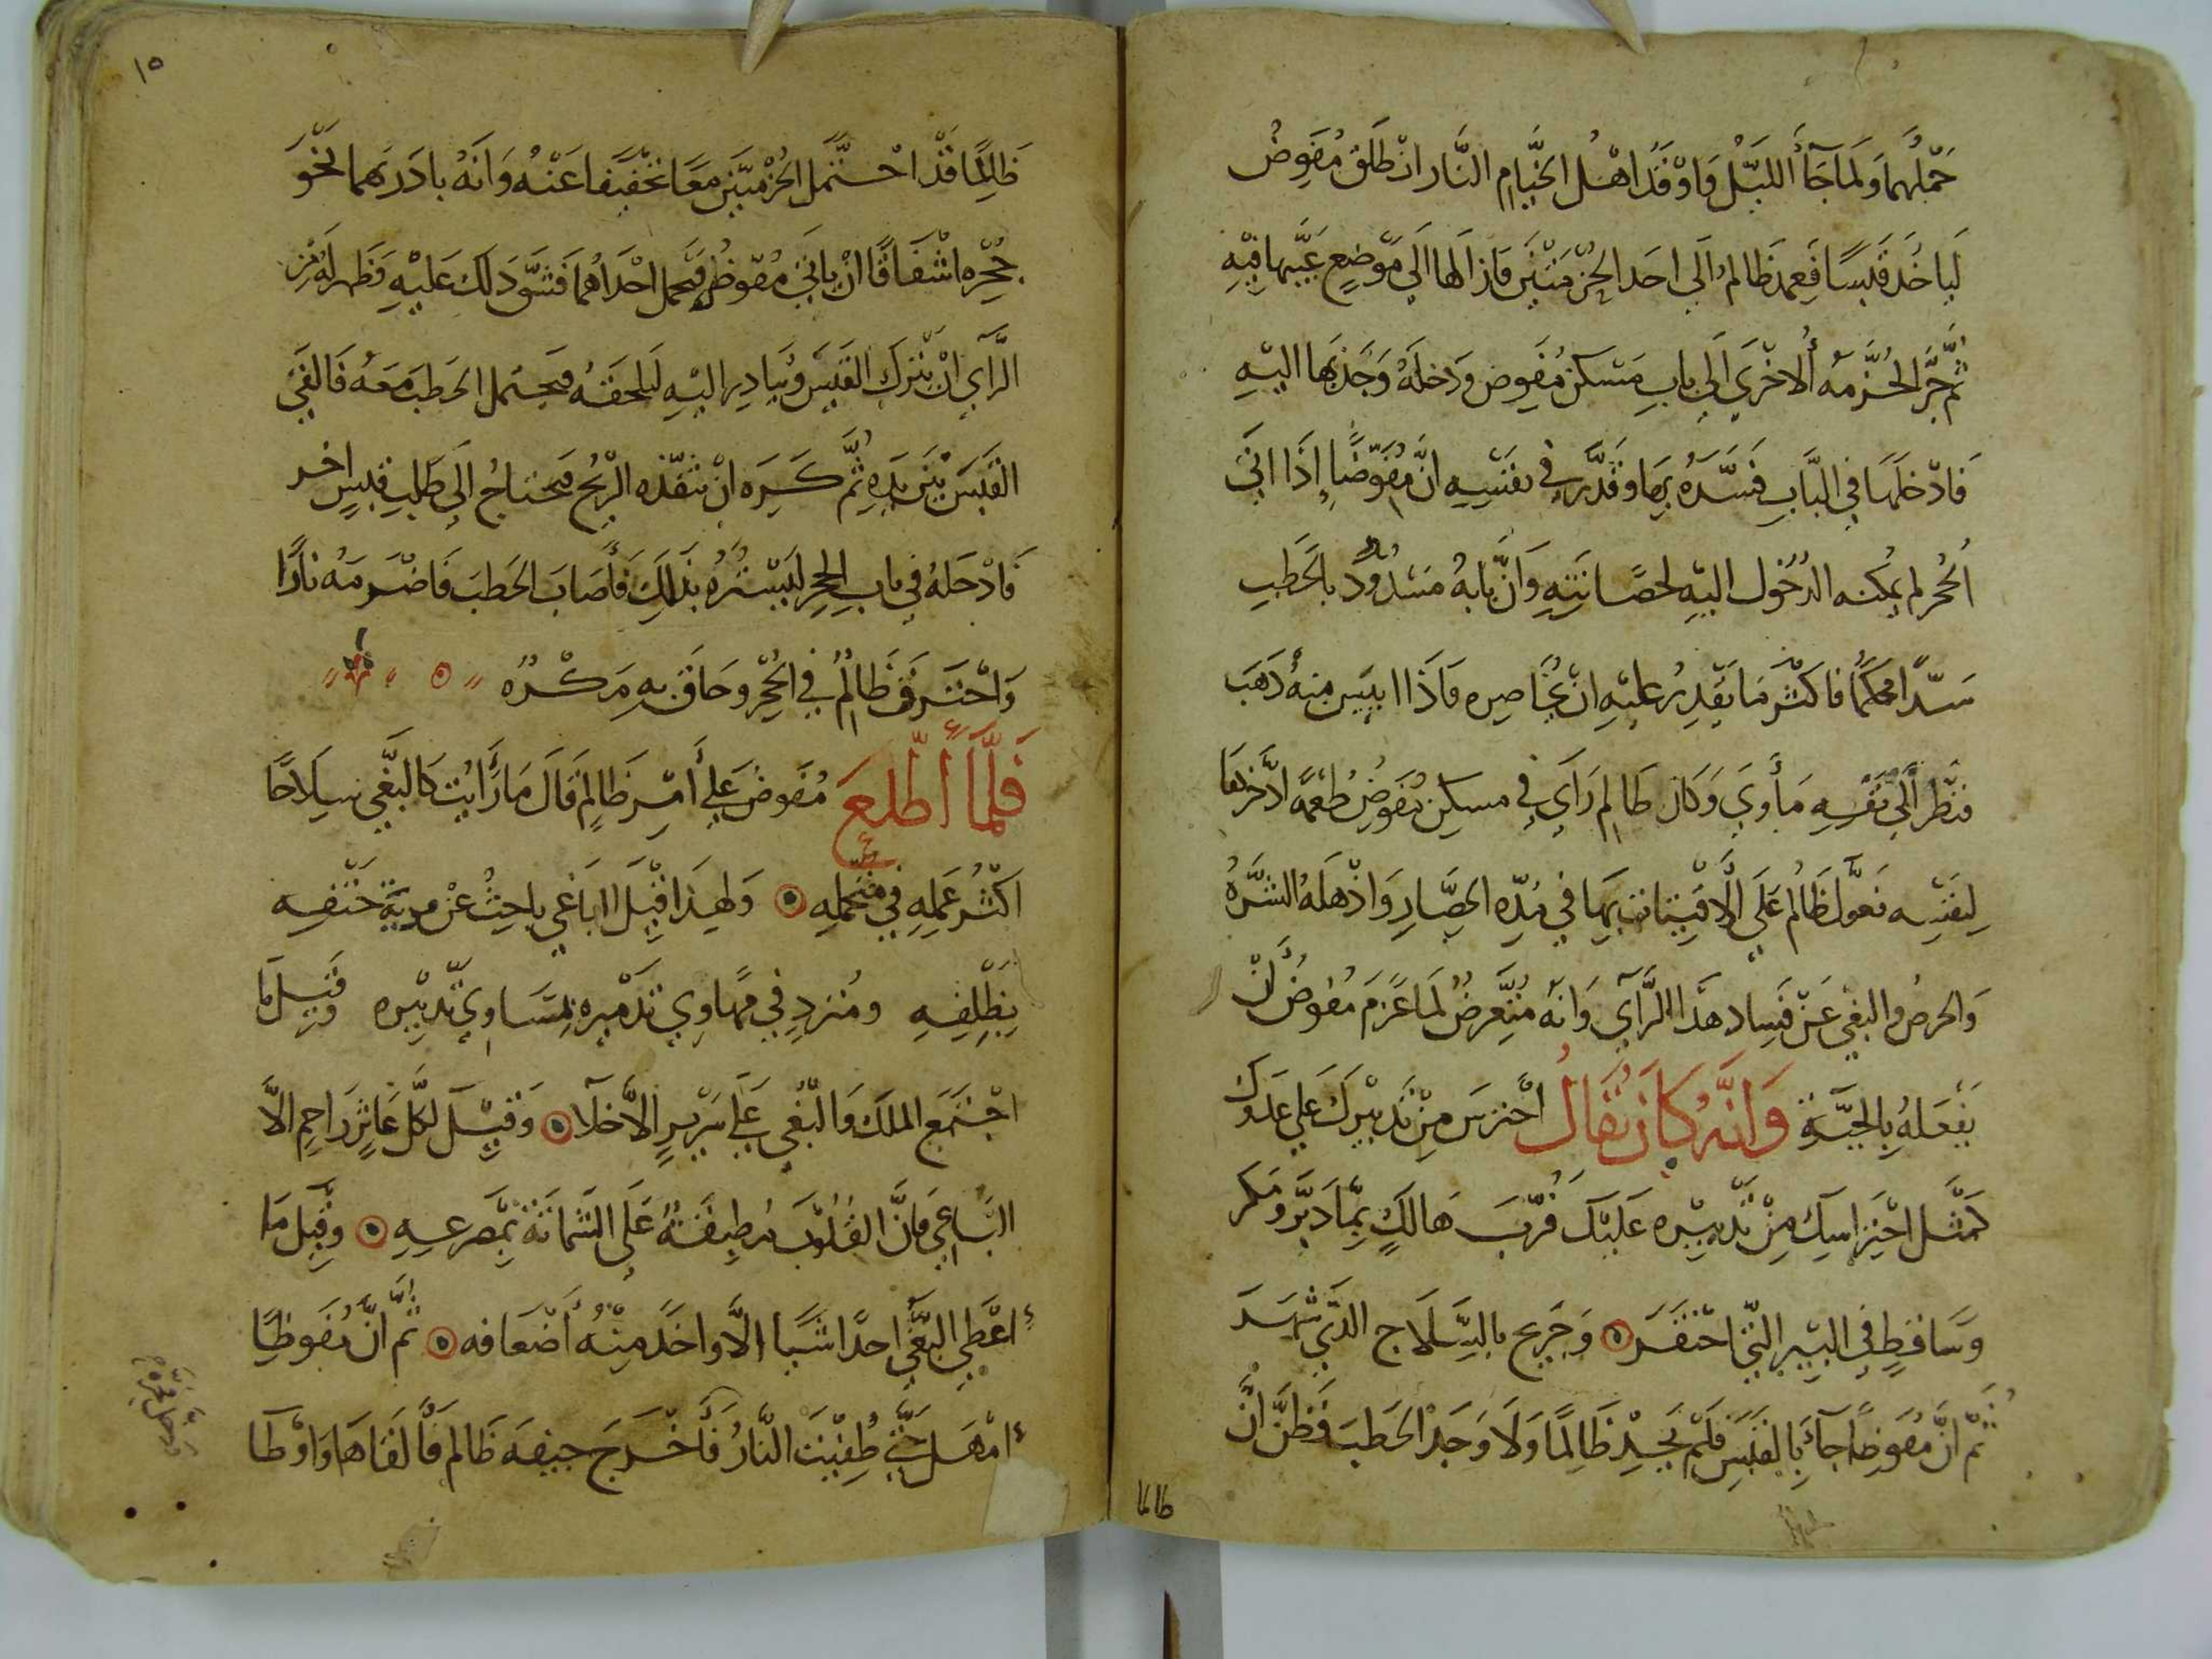 حملهما ولما جآء الليل واوقد اهل الخيام النار انطلق مفوض
ليأخذ قبسا فعمد ظالم الى احد الحزمتين فازالها الى موضع غيبها فيه
ثم جر الحزمه الاخرى الى باب مسكن مفوض ودخله وجذبها اليه
فادخلها في الباب فسده بها وقدر في نفسه ان مفوضا إذا اتى
الحجر لم يمكنه الدخول اليه لحصانته وان بابه مسدود بالحطب
سدا محكما فاكثر ما يقدر عليه ان يحاصره فاذا ايس منه ذهب
فنظر الى نفسه مأوى وكان ظالم رأى في مسكن مفوض طعمة ادخرها
لنفسه فعول ظالم على الاقتيات بها في مدة الحصار واذهله الشره
والحرص والبغي عن فساد هذا الرآى وانه متعرض لما عزم مفوض ان
يفعله بالحية وانه كان يقال احترس من تدبيرك على عدوك
كمثل احتراسك من تدبيره عليك فرب هالك بما دبر ومكر
وساقط في البير التي احتفر وجريح بالسلاح الذي شهر
ثم ان مفوضا جآء بالقبس فلم يجد ظالما ولا وجد الحطب فظن ان
ظالما
١٥
ظالما قد احتمل الحزمتين معا تخفيفا عنه وانه بادر بهما نحو
جحره اشفاقا ان ياتي مفوظ فيحمل احداهما فشق ذلك عليه فظهر له من
الرآى ان يترك القبس ويبادر اليه ليلحقه فيحتمل الحطب معه فالقى
القبس بين يده ثم كره ان تنفده الريح فيحتاج الى طلب قبس اخر
فادخله في باب الحجر ليستره بذلك فأصاب الحطب فاضرمه نارا
واحترق ظالم في الحجر وحاق به مكره
فلما أطلع مفوض على أمر ظالم قال ما رأيت كالبغي سلاحا
اكثر عمله في محمله ولهذا قيل الباغي باحث عن مدية حتفه
بظلفه ومترد في مهاوي تدميره بمساوي تدبيره وقيل ما
اجتمع الملك والبغي على سرير الا خلا وقيل لكل عاثر راحم الا
الباغي فان القلوب مطبقة على الشماتة بمصرعه وقيل ما
اعطى البغي احدا شيا الا واخذ منه أضعافه ثم ان مفوظا
امهل حتى طفيت النار فأخرج جيفه ظالم فألقاها واوطا